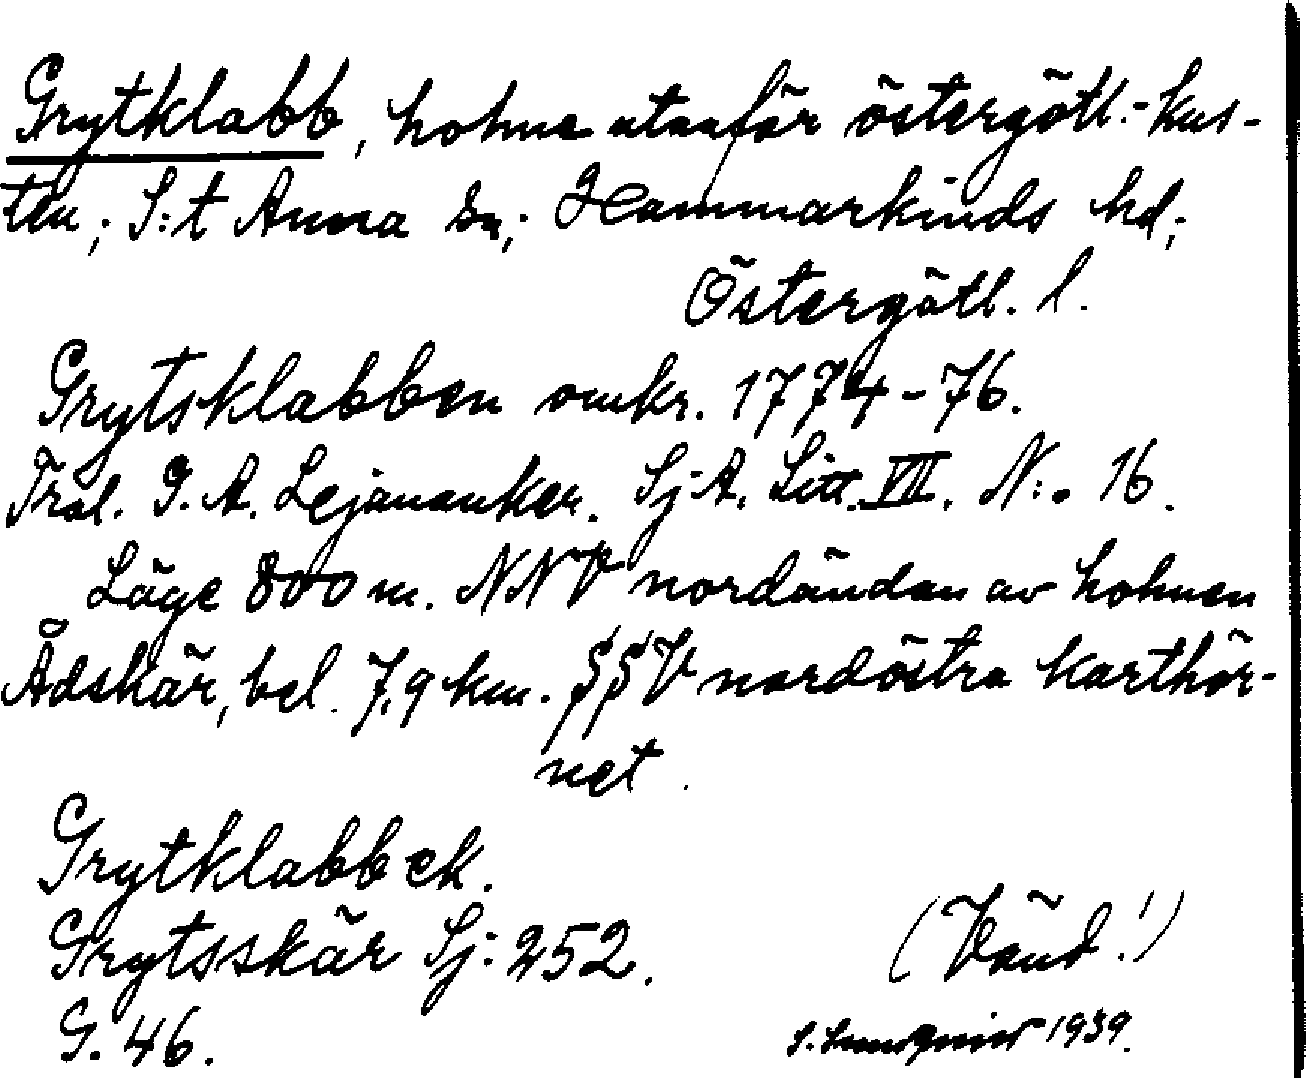 Grytklabb, holme utanför östergötl.-kus-
ten; S:t Anna sn; Hammarkinds hd;
Östergötl. l.
Grytsklabben omkr. 1774-76.
Fral. G. A. Lejonanker. Sj:A. Litt. VII. N:o 16.
Läge 800 m. NNV nordändan av holmen
Ådskär, bel. 7,9 km. SSV nordöstra karthör-
net.
Grytklabb ek.
Grytsskär Sj: 252.
(Vänd!)
G. 46.
1939.